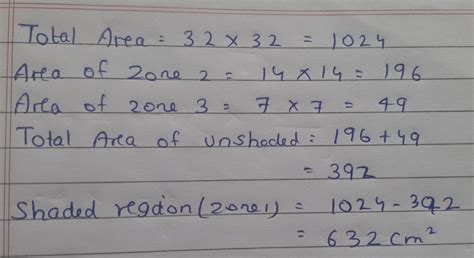 Total Area = 32 × 32 = 1024
Area of Zone 2 = 14 × 14 = 196
Area of zone 3 = 7 × 7 = 49
Total Area of unshaded = 196 + 49
= 392
Shaded regdion (Zone 1) = 1024 - 392
= 632 cm²